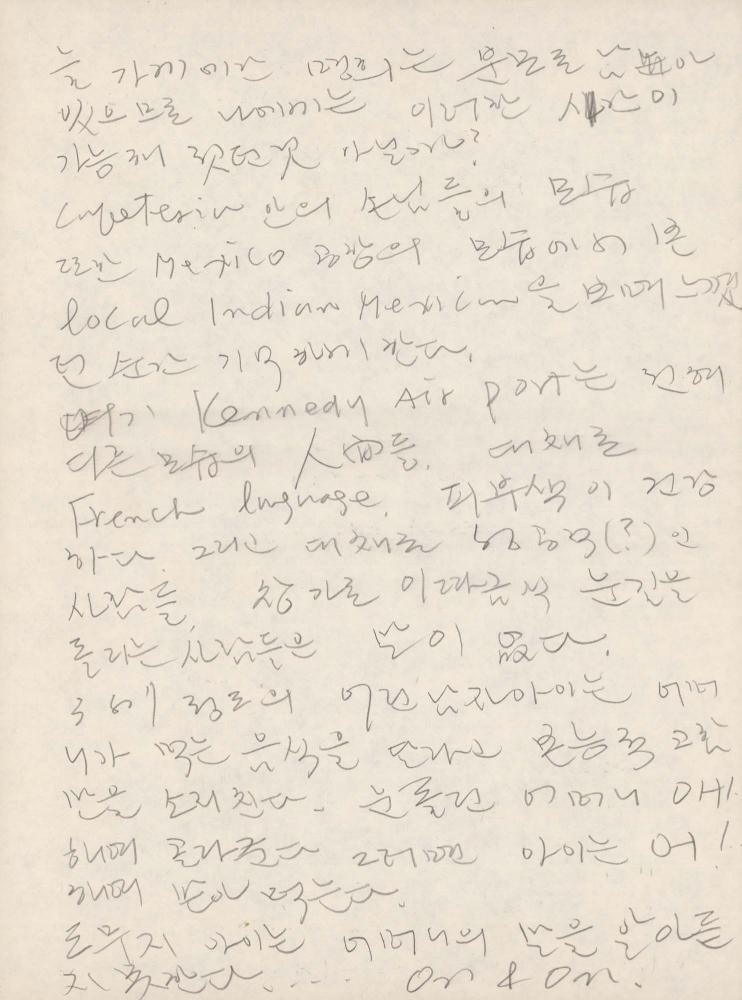 늘 가게 에만 명희는 문으로 남아
있으므로 나에게는 이러한 시간이
가능케 됬던것 아닐가?
Cafeteria 안의 손님들의 모습
또한 Mexico 공항의 모습에서 본
local Indian Mexican을 보며 느꼈
던 순간 기억하게 한다.
여기 Kennedy Air port는 전혀
다른 모습의 人間들. 대체로
French language, 피부색이 건강
하다. 그리고 대체로 성공적(?)인
사람들, 창가로 이따금씩 눈길을
돌리는 사람들은 말이 없다.
3세 정도의 어린 남자아이는 어머
니가 먹는 음식을 달라고 본능적 고함
만을 소리친다. 눈돌린 어머니 OH!
하며 골라준다 그러면 아이는 어!
하며 받아 먹는다.
도무지 아이는 어머니의 말을 알아듣
지 못한다..... On & On.